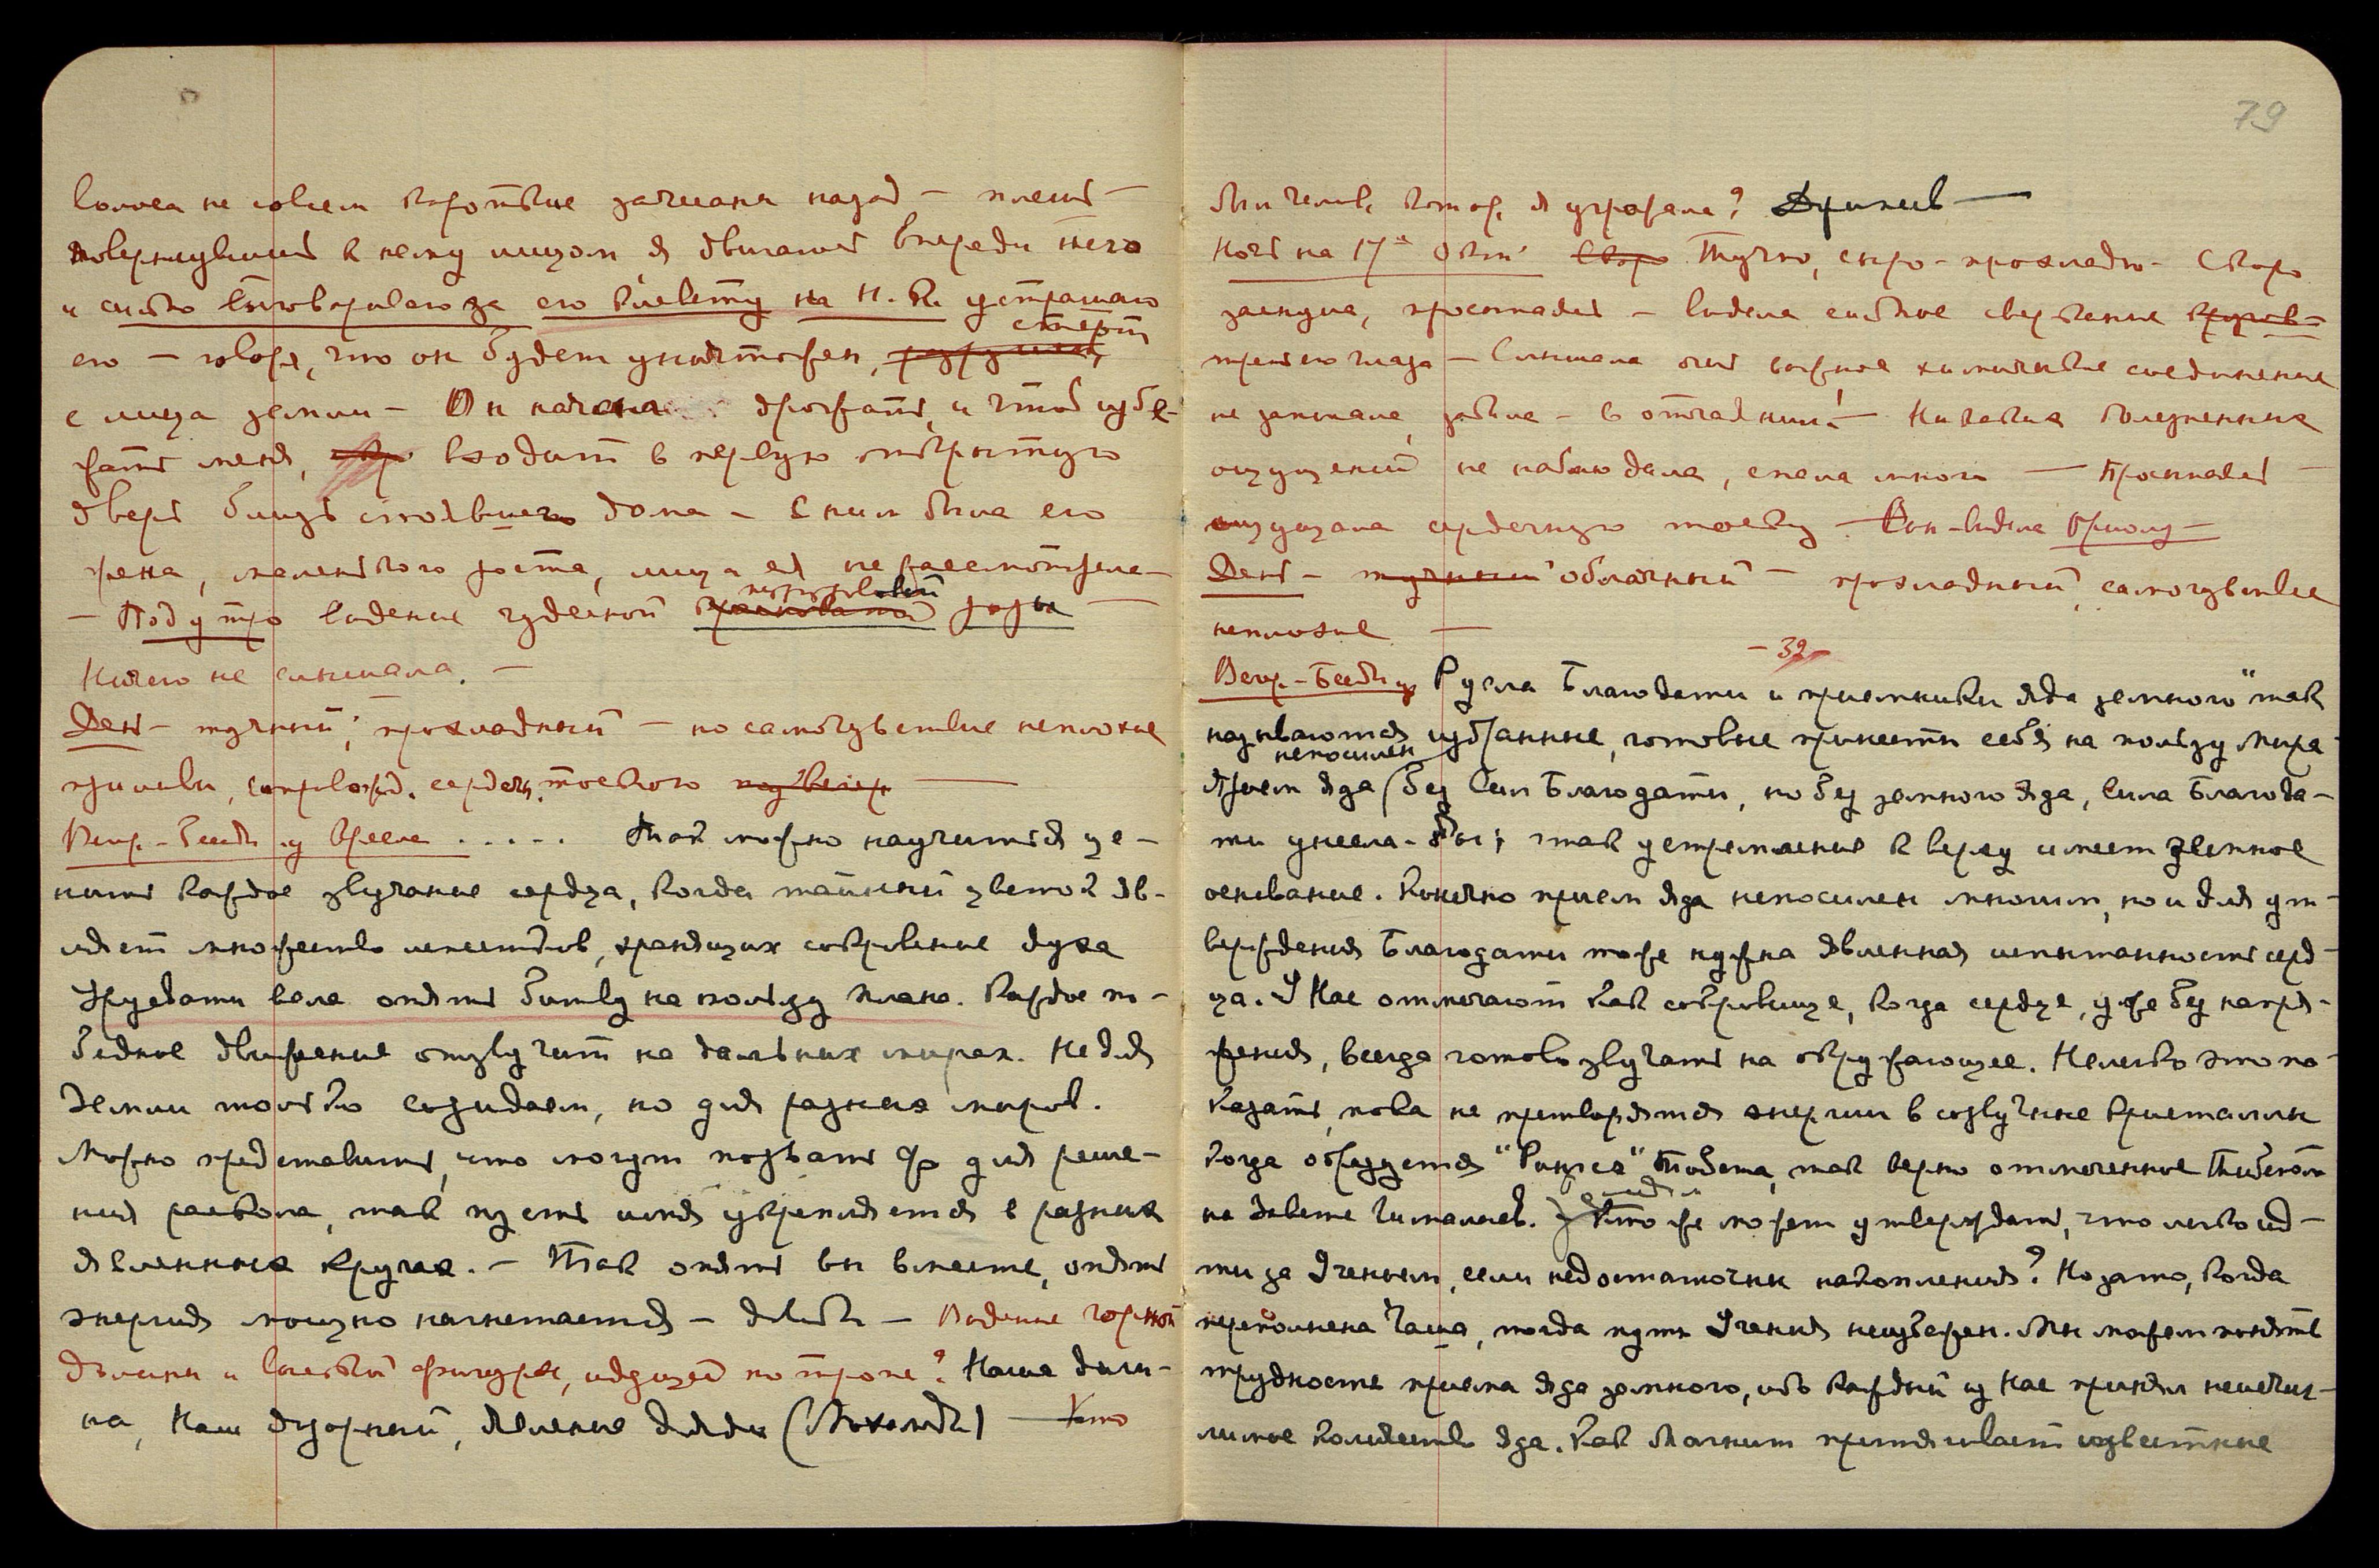 волоса не совсем короткие зачесаны назад —
повернувшись к нему лицом я двигаюсь впереди него
и сильно выговариваю за его клевету на Н.К. устрашаю
его — говоря, что он будет уничтожен, стерт
с лица земли — Он начал дрожать, и чтоб избе-
жать меня, входит в первую открытую
дверь близь стоявшего дома — с ним была его
жена, маленького роста, лица ея не рассмотрела —
— Под утро видение чудесной пурпуровой розы —
Ничего не слышала. —
День — тучный, прохладный — но самочувствие неплохие
приливы, сопровожд. сердечн. тоскою на вечер —
Веч. — Беседы из кресла ..... Так можно научиться це-
нить каждое звучание сердца, когда тайный цветок яв-
ляет множество лепестков, хранящих сокровение духа
Урусвати вела опять битву на пользу плана. Каждое по-
бедное движение отзвучит на дальних мирах. Не для
Земли только созидаем, но для разных миров.
Можно представить, что могут позвать Ф. для реше-
ния раскола, так пусть имя укрепляется в разных
явленных кругах. — Так опять вы вместе, опять
энергия мощно нагнетается — довольно — Видение горной
долины и высокой фигуры, идущей по тропе? Наша доли-
на, Наш дозорный, явление дяди (Мохолды) — Кто
79
был челов. котор. я угрожала? Древнев —
Ночь на 17ое Окт. Скоро Тучно, сыро — прохладно — Скоро
заснула, просыпаясь — видела сильное сверкание кругов —
третьего глаза — Слышала очень важное химическое соединение
не записала, забыла — в отчаянии! — Никаких болезненных
ощущений не наблюдала, спала много — Просыпаясь —
ощущала сердечную тоску — Сон — видела Ояну —
День — тучный облачный — прохладный, самочувствие
неплохие —
— 32 —
Веч. — Беседы из "Русла Благодати и приемники яда земного" так
называются избранные, готовые принести себя на пользу мира
Прием яда непосилен без Силы Благодати, но без земного яда, Сила Благода-
ти унесла-бы; так устремление к верху имеет земное
основание. Конечно прием яда непосилен многим, но и для ут-
верждения Благодати тоже нужна явленная испытанность серд-
ца. У Нас отмечают как сокровище, когда сердце, уже без напря-
жения, всегда готово звучать на окружающее. Нелегко это по-
казать, пока не претворятся энергии в созвучные кристаллы
Когда образуется "Рингсе" Тибета, так верно отмеченное Тибетом
на Завете Гималаев. Кто же может утверждать, что легко ид-
ти за Учением, если недостаточны накопления? Но зато, когда
переполнена Чаша, тогда путь Учения неизбежен. Мы можем понять
трудность приема яда земного, ибо каждый из Нас принял неисчис-
лимое количество яда. Как Магнит притягивает известные